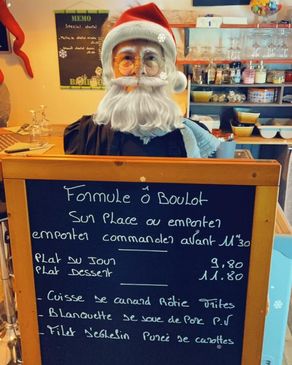 MEMO
Formule Ô Boulot
Sur Place ou emporter
emporter commander avant 11H30
Plat du Jour 9,80
Plat Dessert 11.80
- Cuisse de canard Rôtie Frites
- Blanquette de joue de Porc P.V
- Filet d'eglefin Purée de carottes